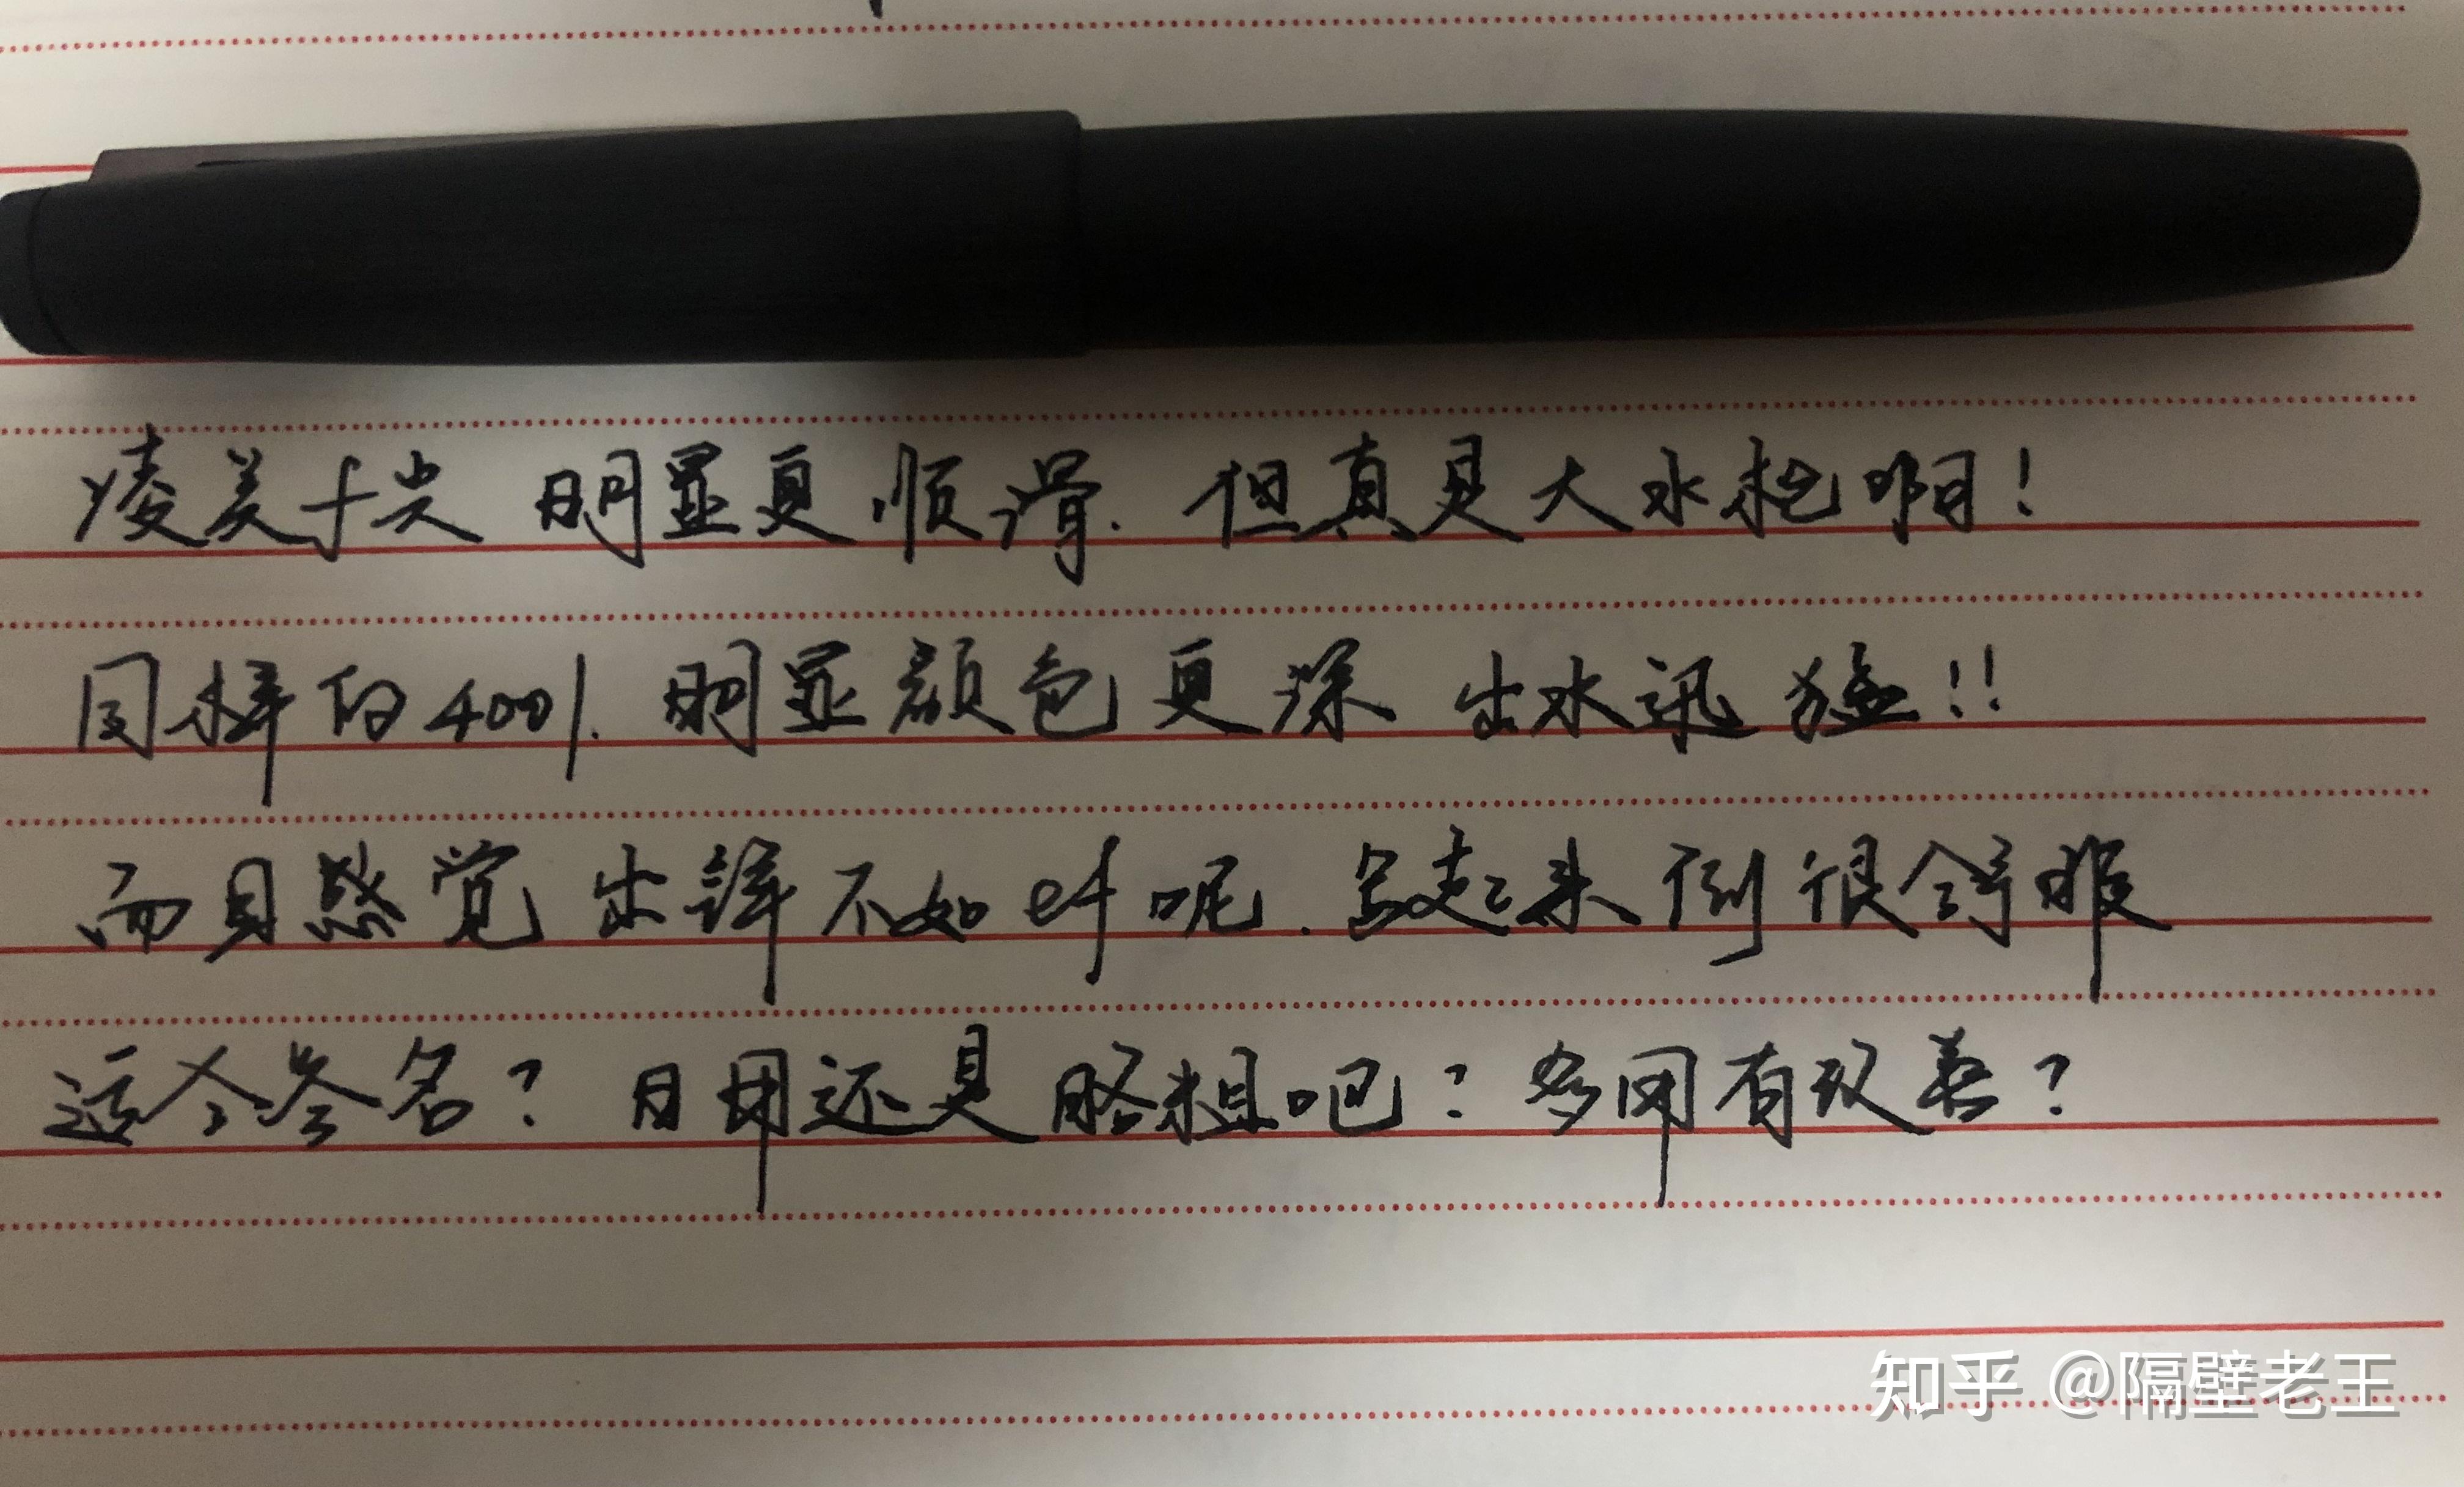 凌美f尖 明显更顺滑.但真是大水枪啊!
同样的400%.明显颜色更深 出水迅猛!!
而且感觉出锋不如ef呢.写起来倒很舒服
适合签名?日用还是略粗吧?多用有改善?
知乎 @隔壁老王